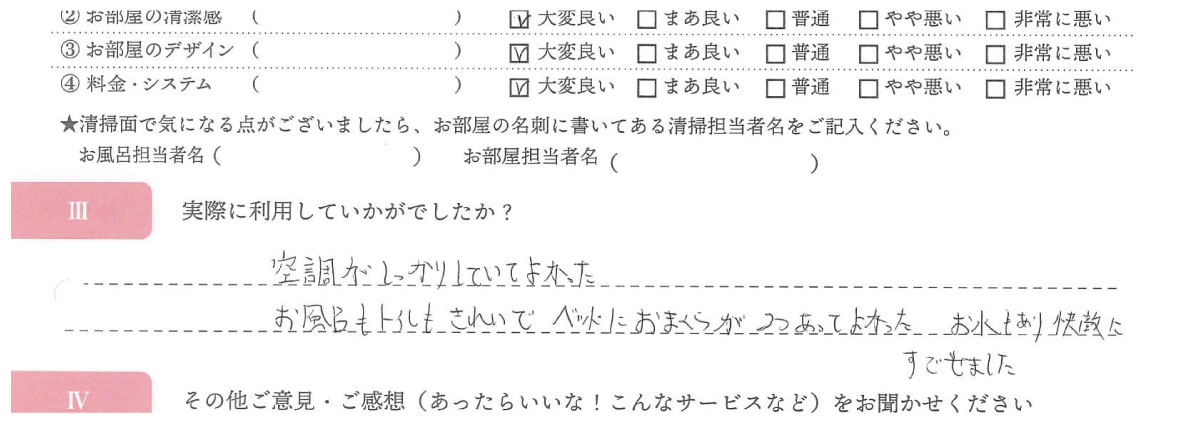 ② お部屋の清潔感 （ ） ☑ 大変良い □ まあ良い □ 普通 □ やや悪い □ 非常に悪い
③ お部屋のデザイン （ ） ☑ 大変良い □ まあ良い □ 普通 □ やや悪い □ 非常に悪い
④ 料金・システム （ ） ☑ 大変良い □ まあ良い □ 普通 □ やや悪い □ 非常に悪い
★清掃面で気になる点がございましたら、お部屋の名刺に書いてある清掃担当者名をご記入ください。
お風呂担当者名（ ） お部屋担当者名（ ）
Ⅲ 実際に利用していかがでしたか？
空調がしっかりしていてよかった
お風呂もトイレもきれいで ベッドにおまくらが2つあってよかった お水もあり快適に
すごせました
Ⅳ その他ご意見・ご感想（あったらいいな！こんなサービスなど）をお聞かせください